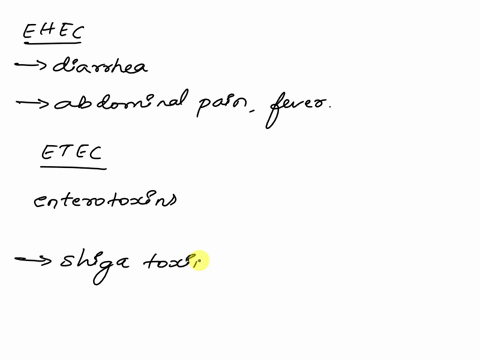 EHEC
→ diarrhea
→ abdominal pain, fever.
ETEC
enterotoxins
→ shiga toxi